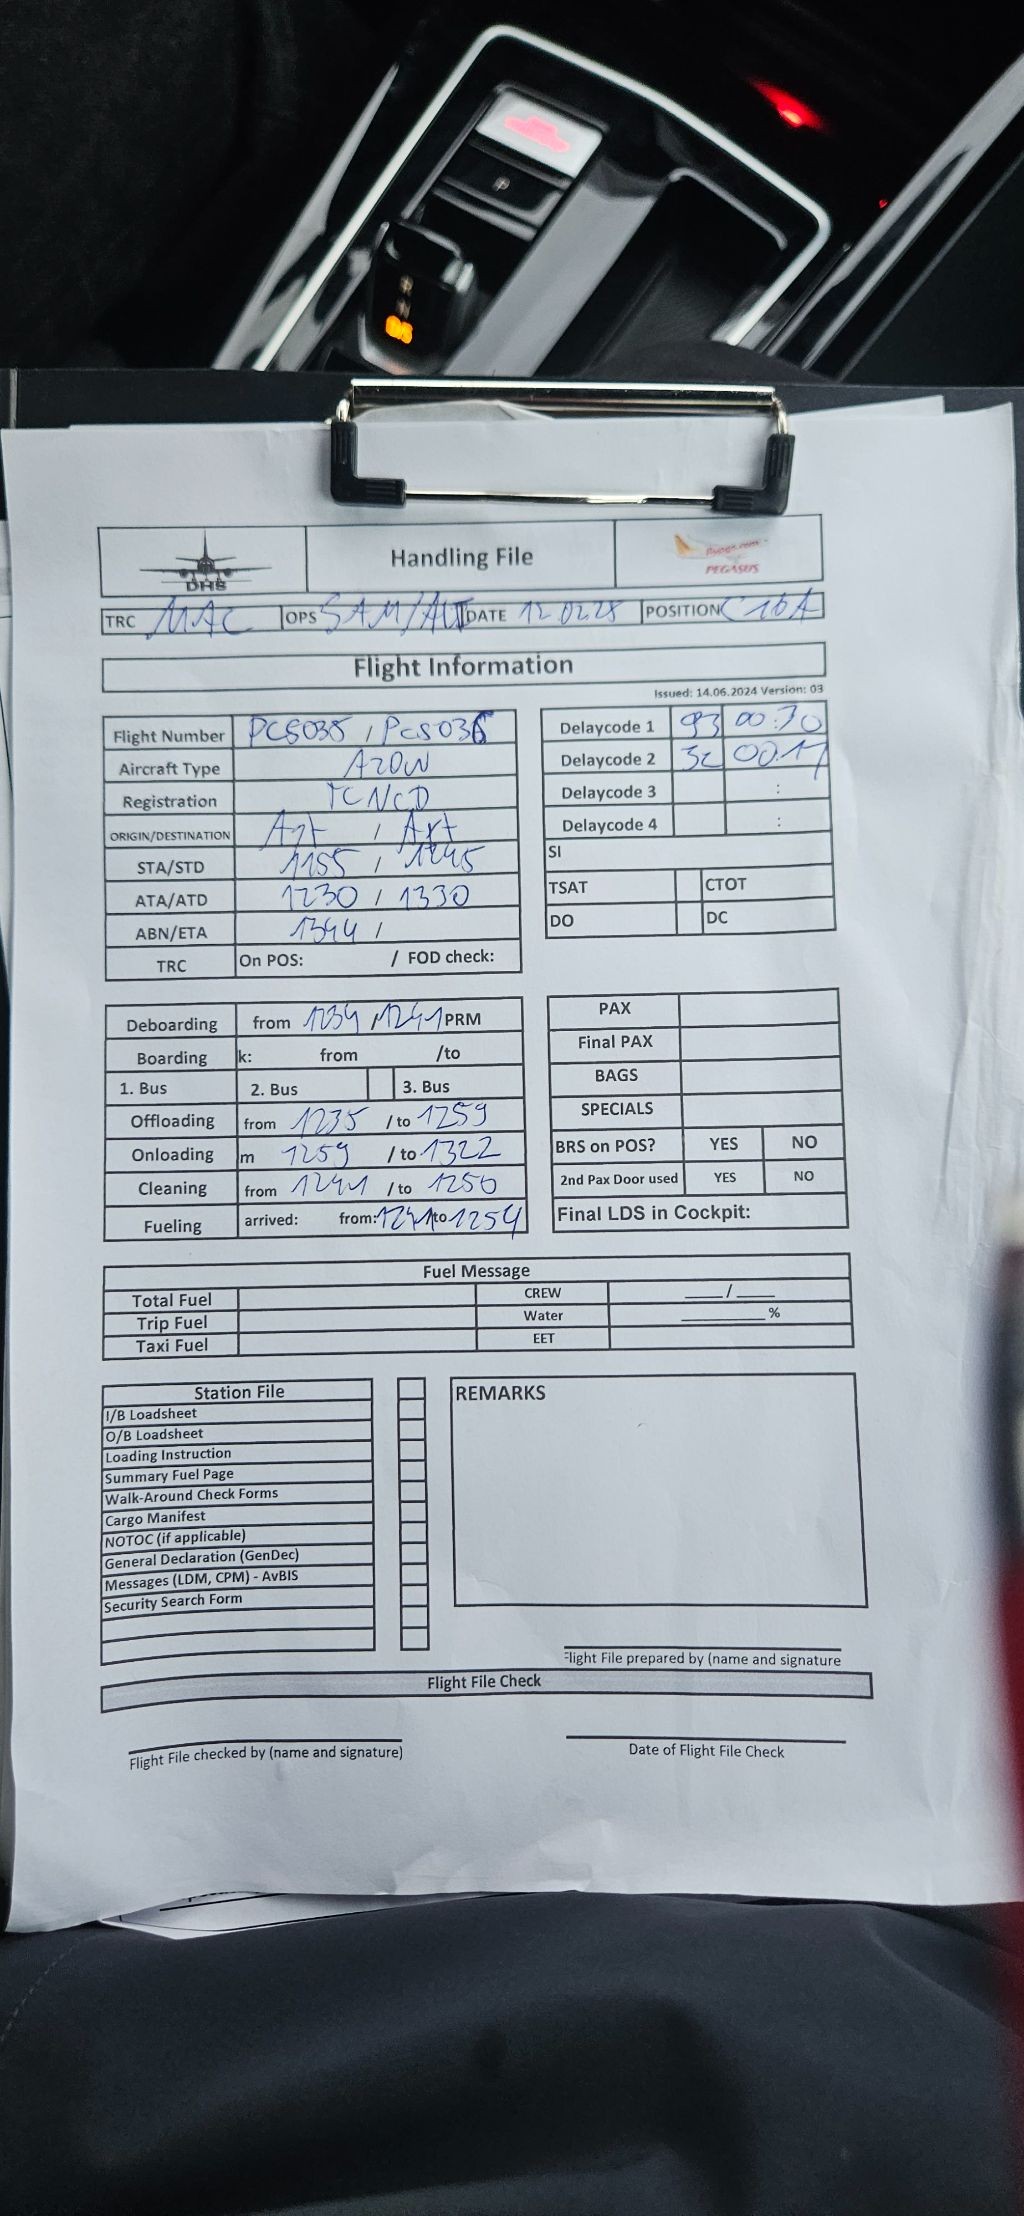 DHS
Handling File
flypgs.com
PEGASUS
TRC MAC OPS SAM/ DATE 12.02.25 POSITION C10A
Flight Information
Issued: 14.06.2024 Version: 03
Flight Number PC5035 / PC5036
Aircraft Type A20W
Registration TCNCD
ORIGIN/DESTINATION /
STA/STD 1155 / 1245
ATA/ATD 1230 / 1330
ABN/ETA 1344 /
TRC On POS: / FOD check:
Delaycode 1 93 00:30
Delaycode 2 32
Delaycode 3 :
Delaycode 4 :
SI
TSAT CTOT
DO DC
Deboarding from 1234 / 1241 PRM
Boarding k: from /to
1. Bus 2. Bus 3. Bus
Offloading from 1235 / to 1259
Onloading m 1259 / to 1322
Cleaning from 1241 / to 1250
Fueling arrived: from: 1241 to 1254
PAX
Final PAX
BAGS
SPECIALS
BRS on POS? YES NO
2nd Pax Door used YES NO
Final LDS in Cockpit:
Fuel Message
Total Fuel CREW ____/____
Trip Fuel Water ________%
Taxi Fuel EET
Station File
I/B Loadsheet
O/B Loadsheet
Loading Instruction
Summary Fuel Page
Walk-Around Check Forms
Cargo Manifest
NOTOC (if applicable)
General Declaration (GenDec)
Messages (LDM, CPM) - AvBIS
Security Search Form
REMARKS
Flight File prepared by (name and signature
Flight File Check
Flight File checked by (name and signature)
Date of Flight File Check